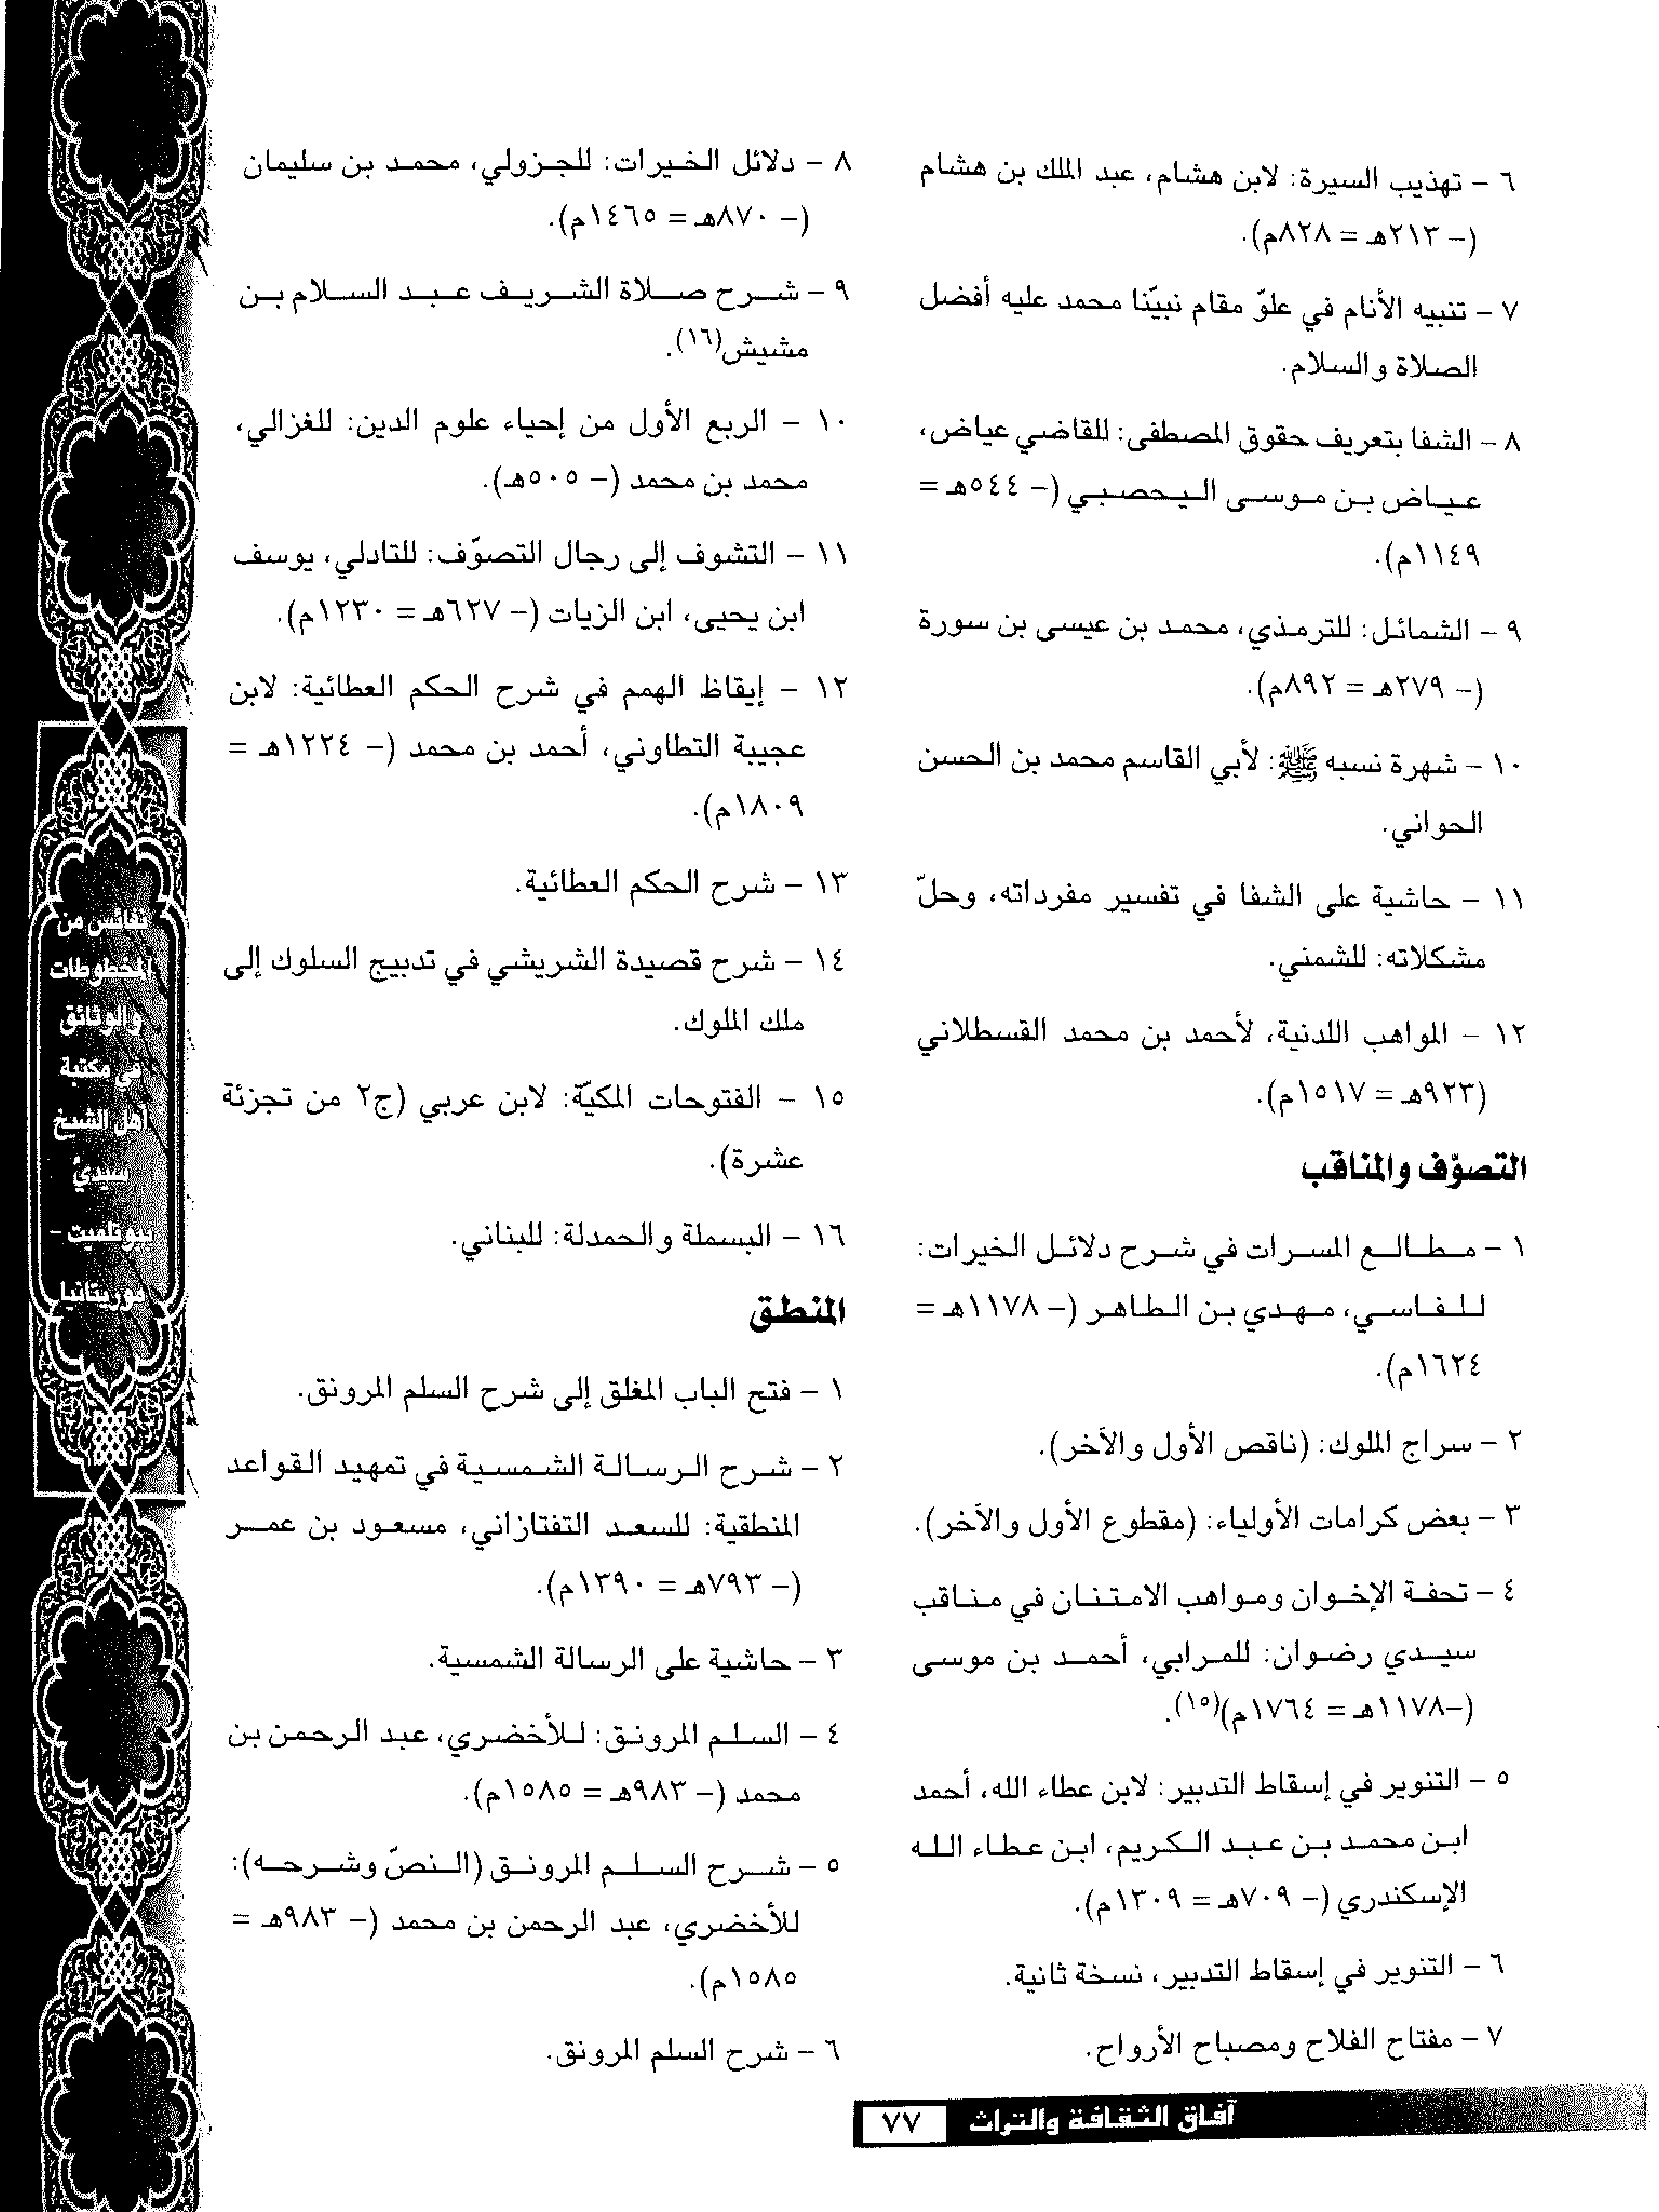 ٦ – تهذيب السيرة: لابن هشام، عبد الملك بن هشام
(– ٢١٣هـ = ٨٢٨م).
٧ – تنبيه الأنام في علوّ مقام نبيّنا محمد عليه أفضل
الصلاة والسلام.
٨ – الشفا بتعريف حقوق المصطفى: للقاضي عياض،
عياض بن موسى اليحصبي (– ٥٤٤هـ =
١١٤٩م).
٩ – الشمائل: للترمذي، محمد بن عيسى بن سورة
(– ٢٧٩هـ = ٨٩٢م).
١٠ – شهرة نسبه ﷺ: لأبي القاسم محمد بن الحسن
الحواني.
١١ – حاشية على الشفا في تفسير مفرداته، وحلّ
مشكلاته: للشمني.
١٢ – المواهب اللدنية، لأحمد بن محمد القسطلاني
(٩٢٣هـ = ١٥١٧م).
التصوّف والمناقب
١ – مطالع المسرات في شرح دلائل الخيرات:
للفاسي، مهدي بن الطاهر (– ١١٧٨هـ =
١٦٢٤م).
٢ – سراج الملوك: (ناقص الأول والآخر).
٣ – بعض كرامات الأولياء: (مقطوع الأول والآخر).
٤ – تحفة الإخوان ومواهب الامتنان في مناقب
سيدي رضوان: للمرابي، أحمد بن موسى
(–١١٧٨هـ = ١٧٦٤م)(١٥).
٥ – التنوير في إسقاط التدبير: لابن عطاء الله، أحمد
ابن محمد بن عبد الكريم، ابن عطاء الله
الإسكندري (– ٧٠٩هـ = ١٣٠٩م).
٦ – التنوير في إسقاط التدبير، نسخة ثانية.
٧ – مفتاح الفلاح ومصباح الأرواح.
٨ – دلائل الخيرات: للجزولي، محمد بن سليمان
(– ٨٧٠هـ = ١٤٦٥م).
٩ – شرح صلاة الشريف عبد السلام بن
مشيش(١٦).
١٠ – الربع الأول من إحياء علوم الدين: للغزالي،
محمد بن محمد (– ٥٠٥هـ).
١١ – التشوف إلى رجال التصوّف: للتادلي، يوسف
ابن يحيى، ابن الزيات (– ٦٢٧هـ = ١٢٣٠م).
١٢ – إيقاظ الهمم في شرح الحكم العطائية: لابن
عجيبة التطاوني، أحمد بن محمد (– ١٢٢٤هـ =
١٨٠٩م).
١٣ – شرح الحكم العطائية.
١٤ – شرح قصيدة الشريشي في تدبيج السلوك إلى
ملك الملوك.
١٥ – الفتوحات المكيّة: لابن عربي (ج٢ من تجزئة
عشرة).
١٦ – البسملة والحمدلة: للبناني.
المنطق
١ – فتح الباب المغلق إلى شرح السلم المرونق.
٢ – شرح الرسالة الشمسية في تمهيد القواعد
المنطقية: للسعد التفتازاني، مسعود بن عمر
(– ٧٩٣هـ = ١٣٩٠م).
٣ – حاشية على الرسالة الشمسية.
٤ – السلم المرونق: للأخضري، عبد الرحمن بن
محمد (– ٩٨٣هـ = ١٥٨٥م).
٥ – شرح السلم المرونق (النصّ وشرحه):
للأخضري، عبد الرحمن بن محمد (– ٩٨٣هـ =
١٥٨٥م).
٦ – شرح السلم المرونق.
نفائس من
المخطوطات
والوثائق
في مكتبة
أهل الشيخ
سيدي
ببوتلميت –
موريتانيا
آفاق الثقافة والتراث ٧٧